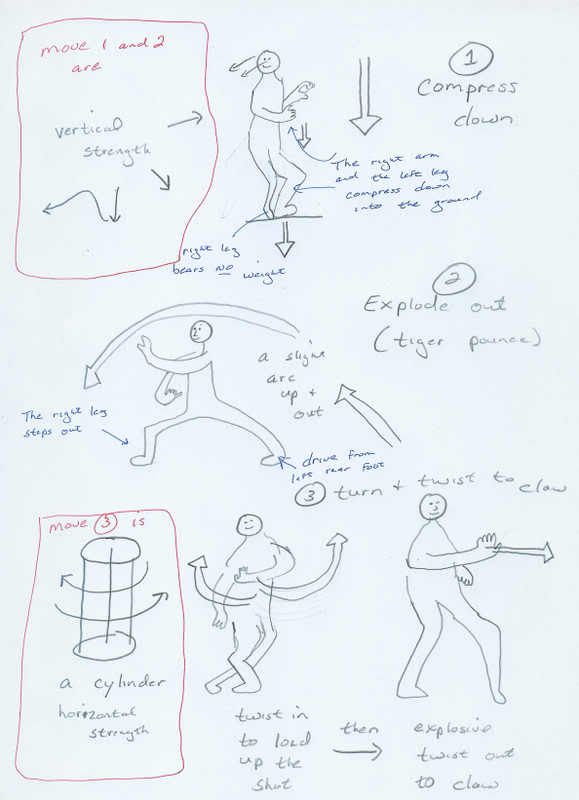 move 1 and 2
are
vertical
strength
1
Compress
down
The right arm
and the left leg
compress down
into the ground
right leg
bears no weight
2
Explode out
(tiger pounce)
a slight
arc
up +
out
The right leg
steps out
drive from
left rear foot
3 turn + twist to claw
move 3 is
a cylinder
horizontal
strength
twist in
to load
up the
shot
then
explosive
twist out
to claw